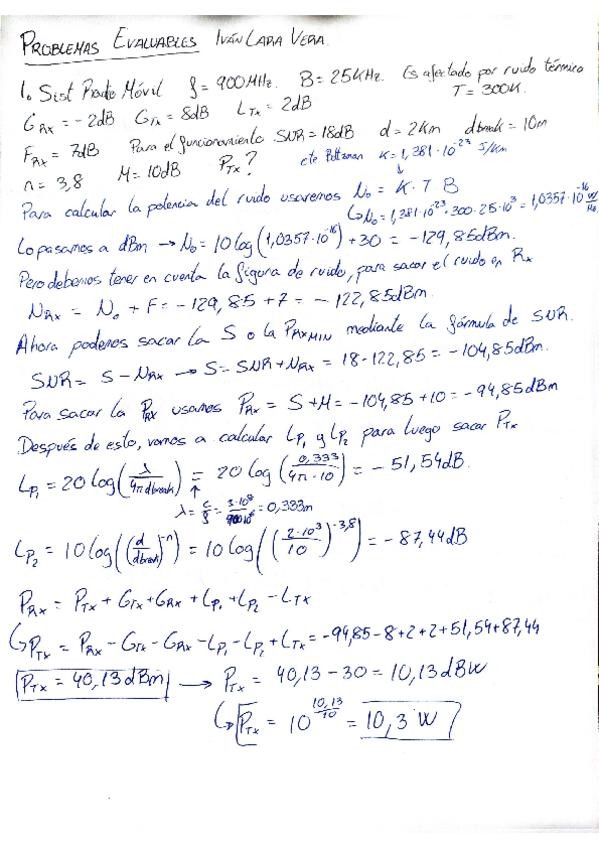 PROBLEMAS EVALUABLES IVÁN LARA VERA.
1. Sist Radio Móvil f = 900MHz. B = 25KHz. Es afectado por ruido térmico
T = 300K.
GRx = -2dB GTx = 8dB LTx = 2dB
FRx = 7dB Para el funcionamiento SNR = 18dB d = 2Km dbreak = 10m
n = 3,8 M = 10dB PTx? cte Boltzman K = 1,381·10^-23 J/K
Para calcular la potencia del ruido usaremos N0 = K·T·B
↳ N0 = 1,381·10^-23·300·25·10^3 = 1,0357·10^-16 W/Hz
Lo pasamos a dBm → N0 = 10log(1,0357·10^-16) + 30 = -129,85dBm.
Pero debemos tener en cuenta la figura de ruido, para sacar el ruido en Rx
NRx = N0 + F = -129,85 + 7 = -122,85dBm.
Ahora podemos sacar la S o la PRxMIN mediante la fórmula de SNR.
SNR = S - NRx → S = SNR + NRx = 18 - 122,85 = -104,85dBm.
Para sacar la PRx usamos PRx = S + M = -104,85 + 10 = -94,85dBm
Después de esto, vamos a calcular LP1 y LP2 para luego sacar PTx
LP1 = 20log(λ/4πdbreak) = 20log(0,333/4π·10) = -51,54dB.
λ = c/f = 3·10^8/900·10^6 = 0,333m
LP2 = 10log((d/dbreak)^-n) = 10log((2·10^3/10)^-3,8) = -87,44dB
PRx = PTx + GTx + GRx + LP1 + LP2 - LTx
↳ PTx = PRx - GTx - GRx - LP1 - LP2 + LTx = -94,85 - 8 + 2 + 2 + 51,54 + 87,44
PTx = 40,13dBm → PTx = 40,13 - 30 = 10,13dBW
↳ PTx = 10^(10,13/10) = 10,3 W